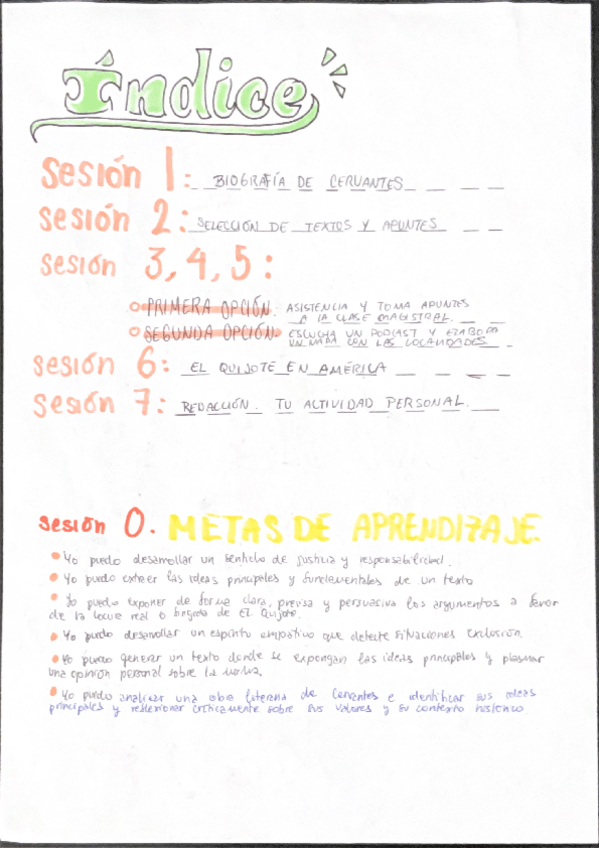 Índice
sesión 1: BIOGRAFÍA DE CERVANTES
sesión 2: SELECCIÓN DE TEXTOS Y APUNTES
sesión 3, 4, 5:
PRIMERA OPCIÓN: ASISTENCIA Y TOMA APUNTES
A LA CLASE MAGISTRAL.
SEGUNDA OPCIÓN: ESCUCHA UN PODCAST Y ELABORA
UN MAPA CON LAS LOCALIDADES
sesión 6: EL QUIJOTE EN AMÉRICA
sesión 7: REDACCIÓN. TU ACTIVIDAD PERSONAL.
sesión 0. METAS DE APRENDIZAJE
• Yo puedo desarrollar un sentido de justicia y responsabilidad.
• Yo puedo extraer las ideas principales y fundamentales de un texto
• Yo puedo exponer de forma clara, precisa y persuasiva los argumentos a favor
de la locura real o fingida de El Quijote.
• Yo puedo desarrollar un espíritu empático que detecte situaciones exclusión.
• Yo puedo generar un texto donde se expongan las ideas principales y plasmar
una opinión personal sobre la
• Yo puedo analizar una obra literaria de Cervantes e identificar sus ideas
principales y reflexionar críticamente sobre sus valores y su contexto histórico